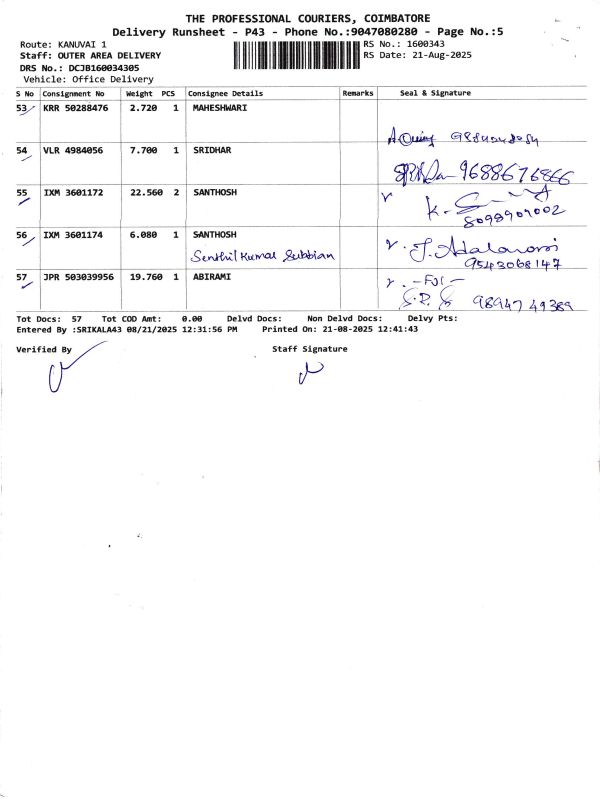 THE PROFESSIONAL COURIERS, COIMBATORE
Delivery Runsheet - P43 - Phone No.:9047080280 - Page No.:5
Route: KANUVAI 1
RS No.: 1600343
Staff: OUTER AREA DELIVERY
RS Date: 21-Aug-2025
DRS No.: DCJB160034305
Vehicle: Office Delivery
S No Consignment No Weight PCS Consignee Details Remarks Seal & Signature
53 KRR 50288476 2.720 1 MAHESHWARI
54 VLR 4984056 7.700 1 SRIDHAR
9688676866
55 IXM 3601172 22.560 2 SANTHOSH
8098909002
56 IXM 3601174 6.080 1 SANTHOSH
Senthil Kumar Subbian
9543068147
57 JPR 503039956 19.760 1 ABIRAMI
-For-
98947 49389
Tot Docs: 57 Tot COD Amt: 0.00 Delvd Docs: Non Delvd Docs: Delvy Pts:
Entered By :SRIKALA43 08/21/2025 12:31:56 PM Printed On: 21-08-2025 12:41:43
Verified By Staff Signature